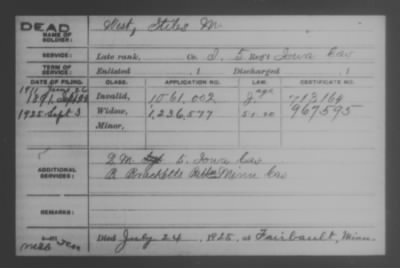 DEAD
NAME OF SOLDIER:
West, Stiles M.
SERVICE:
Late rank, Co. I, 5 Reg't Iowa Cav
TERM OF SERVICE:
Enlisted , 1 Discharged , 1
DATE OF FILING. CLASS. APPLICATION NO. LAW. CERTIFICATE NO.
1911 June 26
1891 Invalid, 1061,002 age 713164
1925 Sept 3 Widow, 1,236,577 967595
Minor,
ADDITIONAL SERVICES:
D. M. 5. Iowa Cav
B Bracketts Battn Minn Cav
REMARKS:
Died July 24, 1925, at Faribault, Minn.